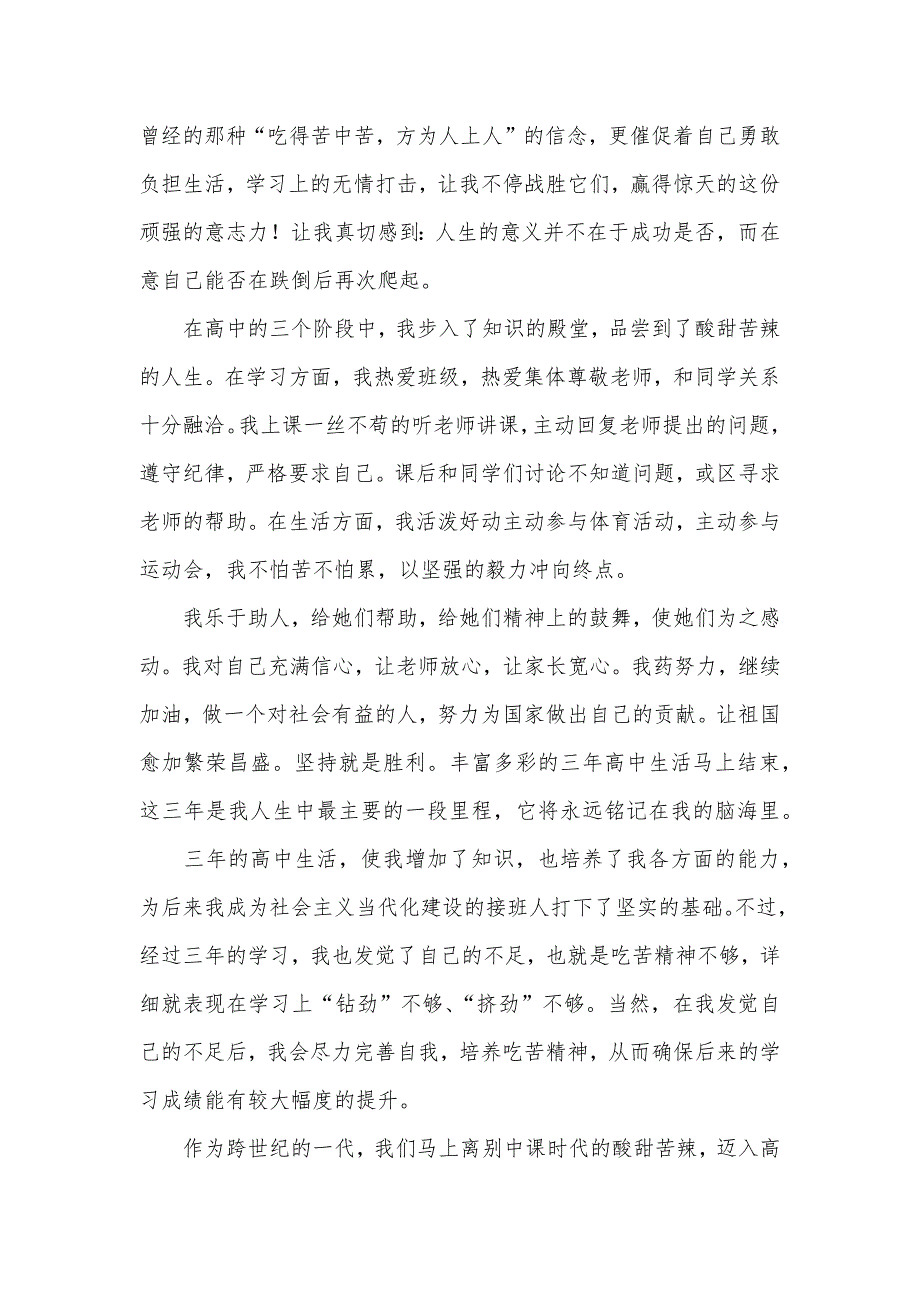 曾经的那种“吃得苦中苦，方为人上人”的信念，更催促着自己勇敢
负担生活，学习上的无情打击，让我不停战胜它们，赢得惊天的这份
顽强的意志力！让我真切感到：人生的意义并不在于成功是否，而在
意自己能否在跌倒后再次爬起。
在高中的三个阶段中，我步入了知识的殿堂，品尝到了酸甜苦辣
的人生。在学习方面，我热爱班级，热爱集体尊敬老师，和同学关系
十分融洽。我上课一丝不苟的听老师讲课，主动回复老师提出的问题，
遵守纪律，严格要求自己。课后和同学们讨论不知道问题，或区寻求
老师的帮助。在生活方面，我活泼好动主动参与体育活动，主动参与
运动会，我不怕苦不怕累，以坚强的毅力冲向终点。
我乐于助人，给她们帮助，给她们精神上的鼓舞，使她们为之感
动。我对自己充满信心，让老师放心，让家长宽心。我药努力，继续
加油，做一个对社会有益的人，努力为国家做出自己的贡献。让祖国
愈加繁荣昌盛。坚持就是胜利。丰富多彩的三年高中生活马上结束，
这三年是我人生中最主要的一段里程，它将永远铭记在我的脑海里。
三年的高中生活，使我增加了知识，也培养了我各方面的能力，
为后来我成为社会主义当代化建设的接班人打下了坚实的基础。不过，
经过三年的学习，我也发觉了自己的不足，也就是吃苦精神不够，详
细就表现在学习上“钻劲”不够、“挤劲”不够。当然，在我发觉自
己的不足后，我会尽力完善自我，培养吃苦精神，从而确保后来的学
习成绩能有较大幅度的提升。
作为跨世纪的一代，我们马上离别中课时代的酸甜苦辣，迈入高